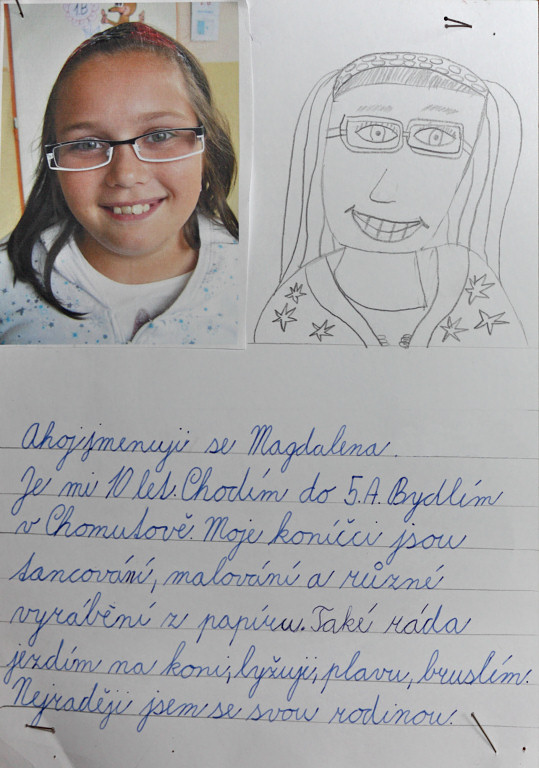 1B
Ahoj jmenuji se Magdalena.
Je mi 10 let. Chodím do 5.A. Bydlím
v Chomutově. Moje koníčci jsou
tancování, malování a různé
vyrábění z papíru. Také ráda
jezdím na koni, lyžuji, plavu, bruslím.
Nejraději jsem se svou rodinou.